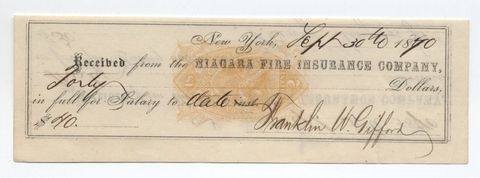 New York, Sept 30th 1870
Received from the NIAGARA FIRE INSURANCE COMPANY,
Forty Dollars,
in full for Salary to date
$40. Franklin W. Gifford